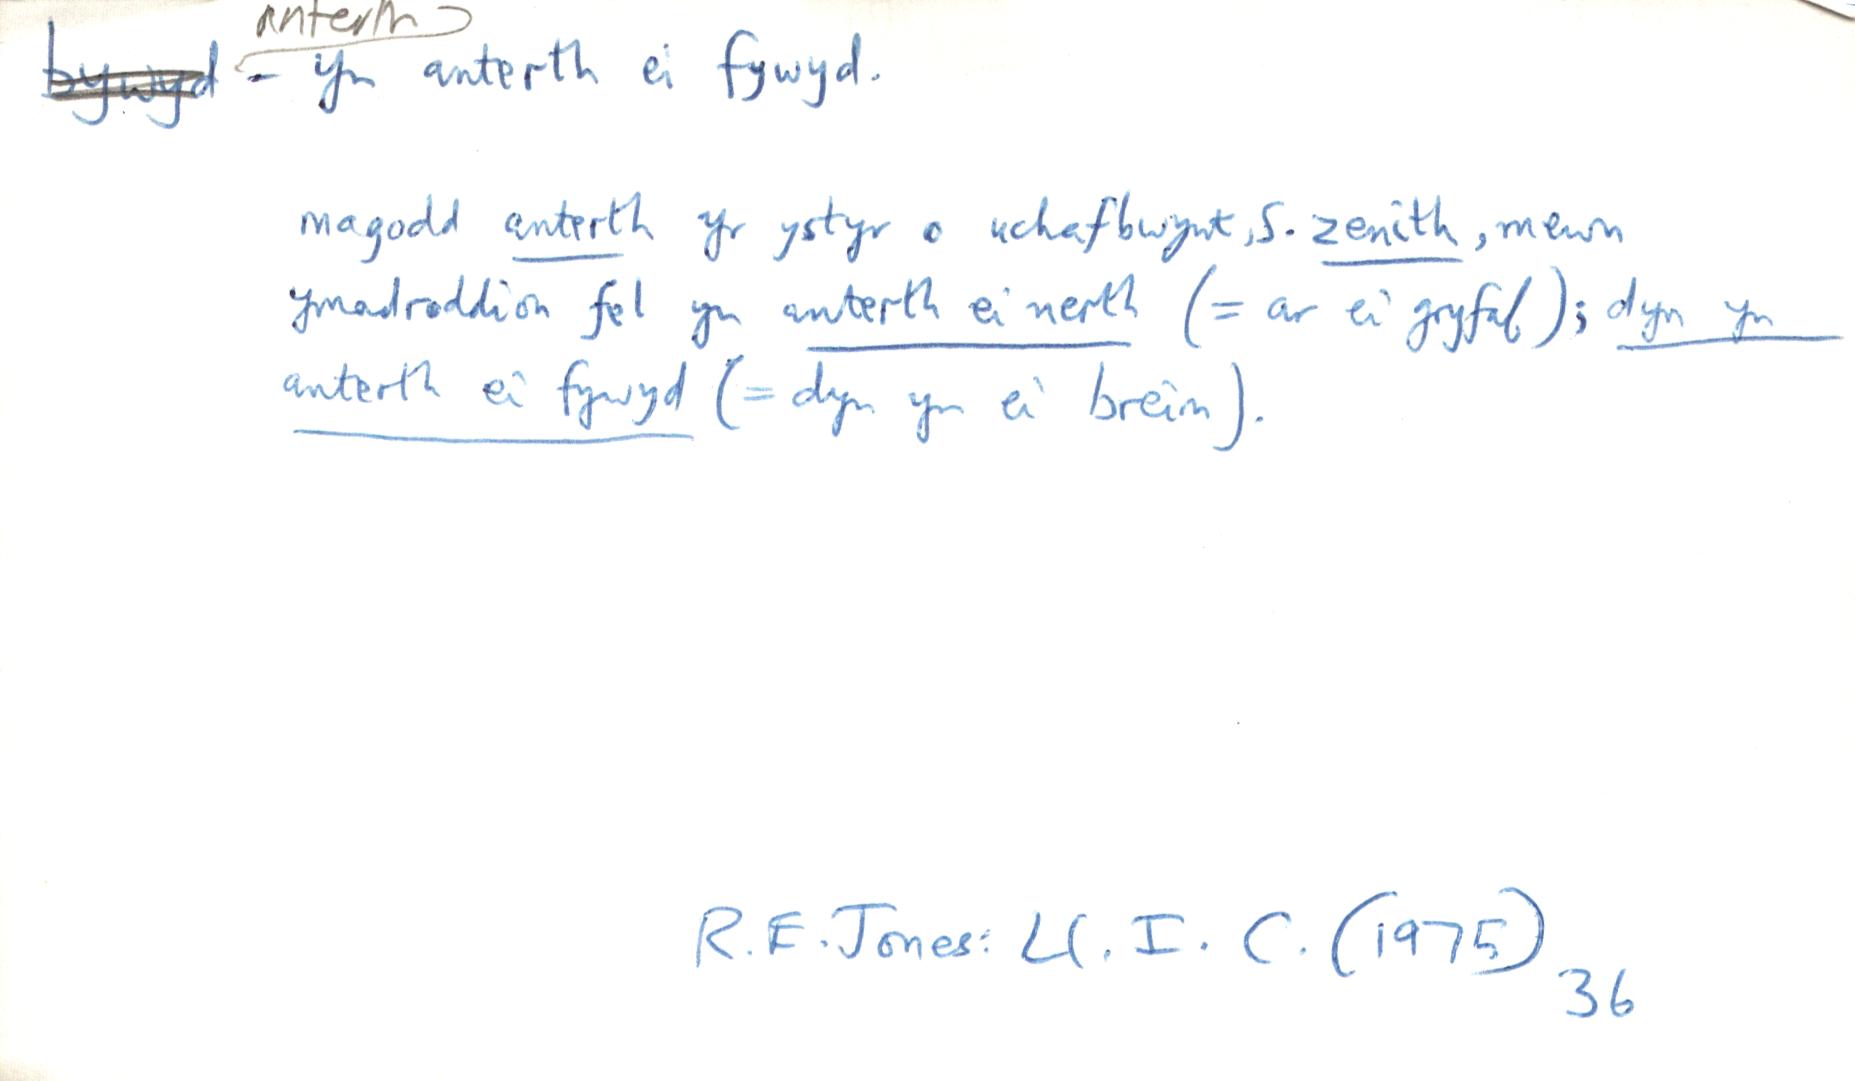 anterth
bywyd - yn anterth ei fywyd.
magodd anterth yr ystyr o uchafbwynt, S. zenith, mewn
ymadroddion fel yn anterth ei nerth (= ar ei gryfaf); dyn yn
anterth ei fywyd (= dyn yn ei breim).
R.E. Jones: Ll. I. C. (1975)
36